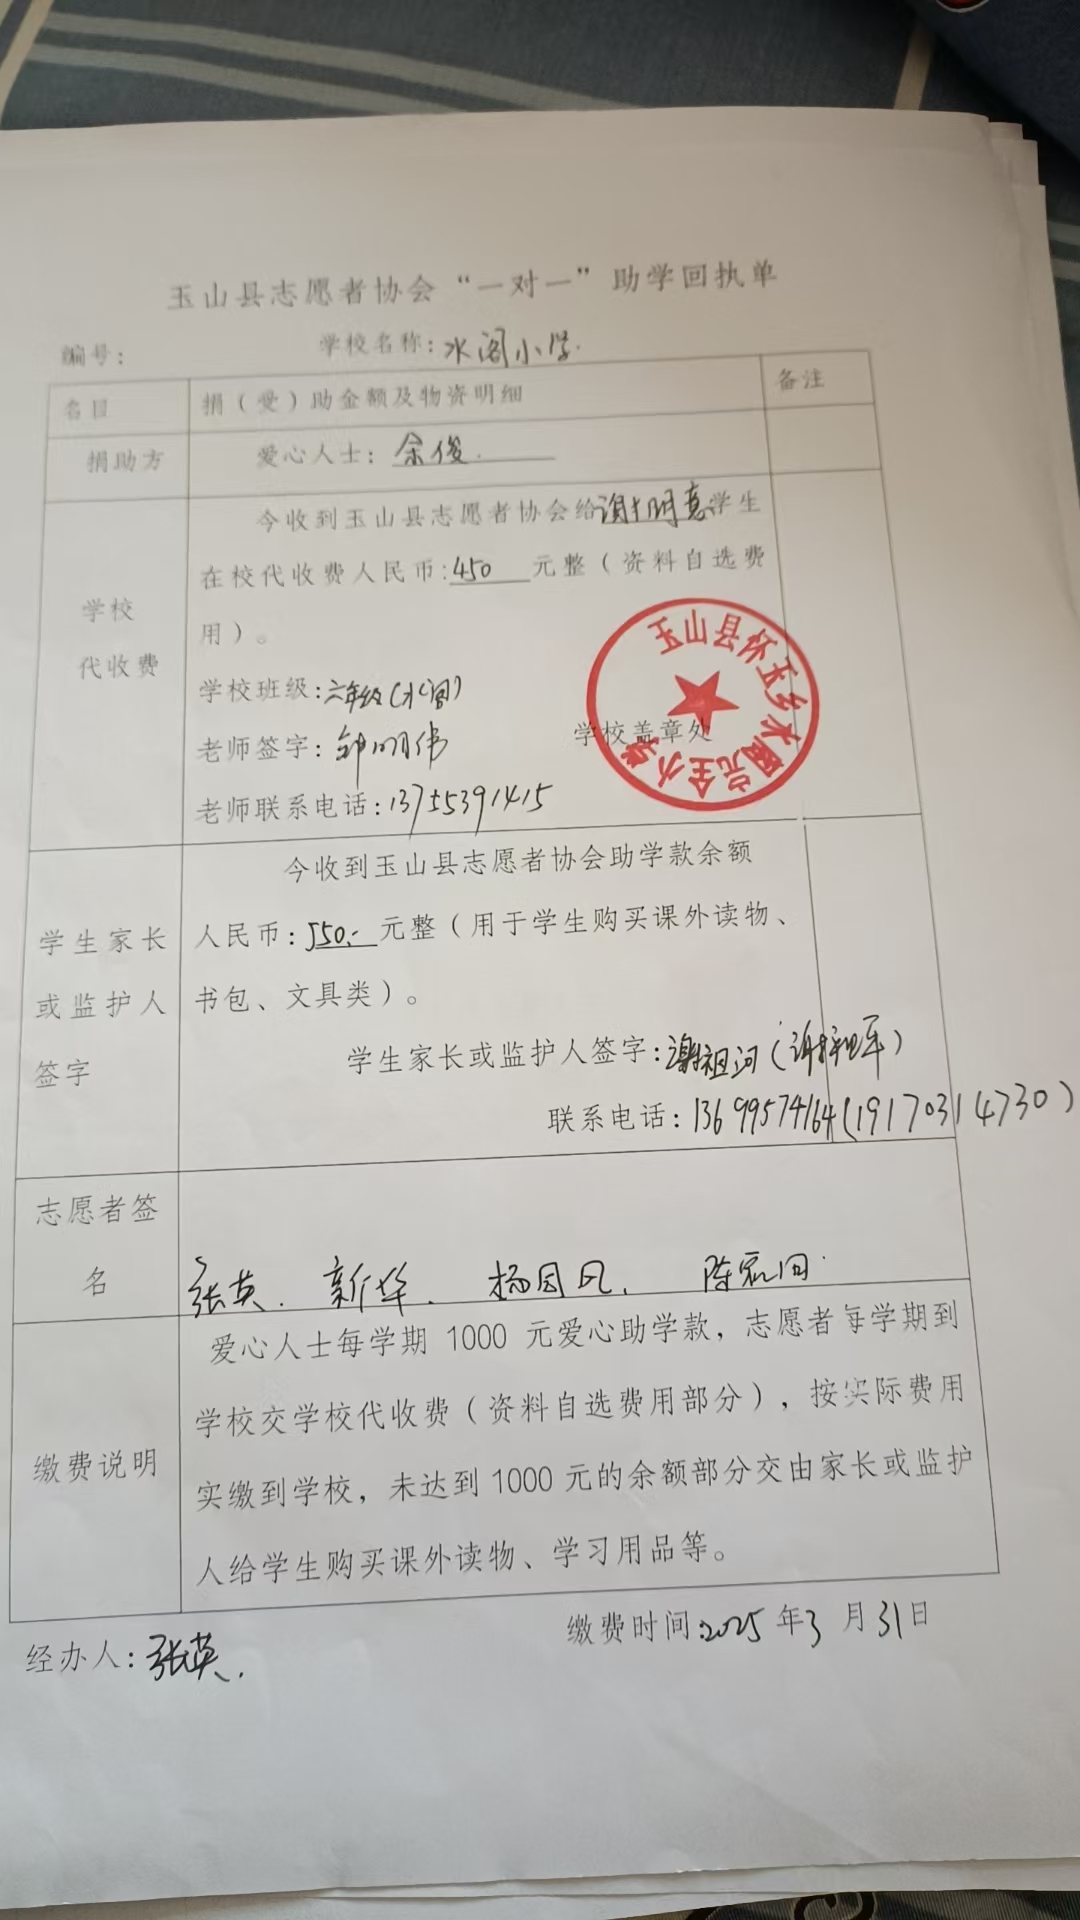 玉山县志愿者协会“一对一”助学回执单
编号： 学校名称：水阁小学.
名目 捐（受）助金额及物资明细 备注
捐助方 爱心人士：余俊.
学校代收费
今收到玉山县志愿者协会给谢明喜学生
在校代收费人民币:450 元整（资料自选费
用）。
学校班级:六年级(水阁)
老师签字：钟明伟
学校盖章处
老师联系电话:13755391415
玉山县怀玉乡水阁完全小学
学生家长
或监护人
签字
今收到玉山县志愿者协会助学款余额
人民币:550.- 元整（用于学生购买课外读物、
书包、文具类）。
学生家长或监护人签字:谢祖河(谢祖军)
联系电话:13699574164(19170314730)
志愿者签
名
张英. 新华. 杨国凤.
缴费说明
爱心人士每学期 1000 元爱心助学款，志愿者每学期到
学校交学校代收费（资料自选费用部分），按实际费用
实缴到学校，未达到1000元的余额部分交由家长或监护
人给学生购买课外读物、学习用品等。
经办人:张英.
缴费时间:2025年3月31日